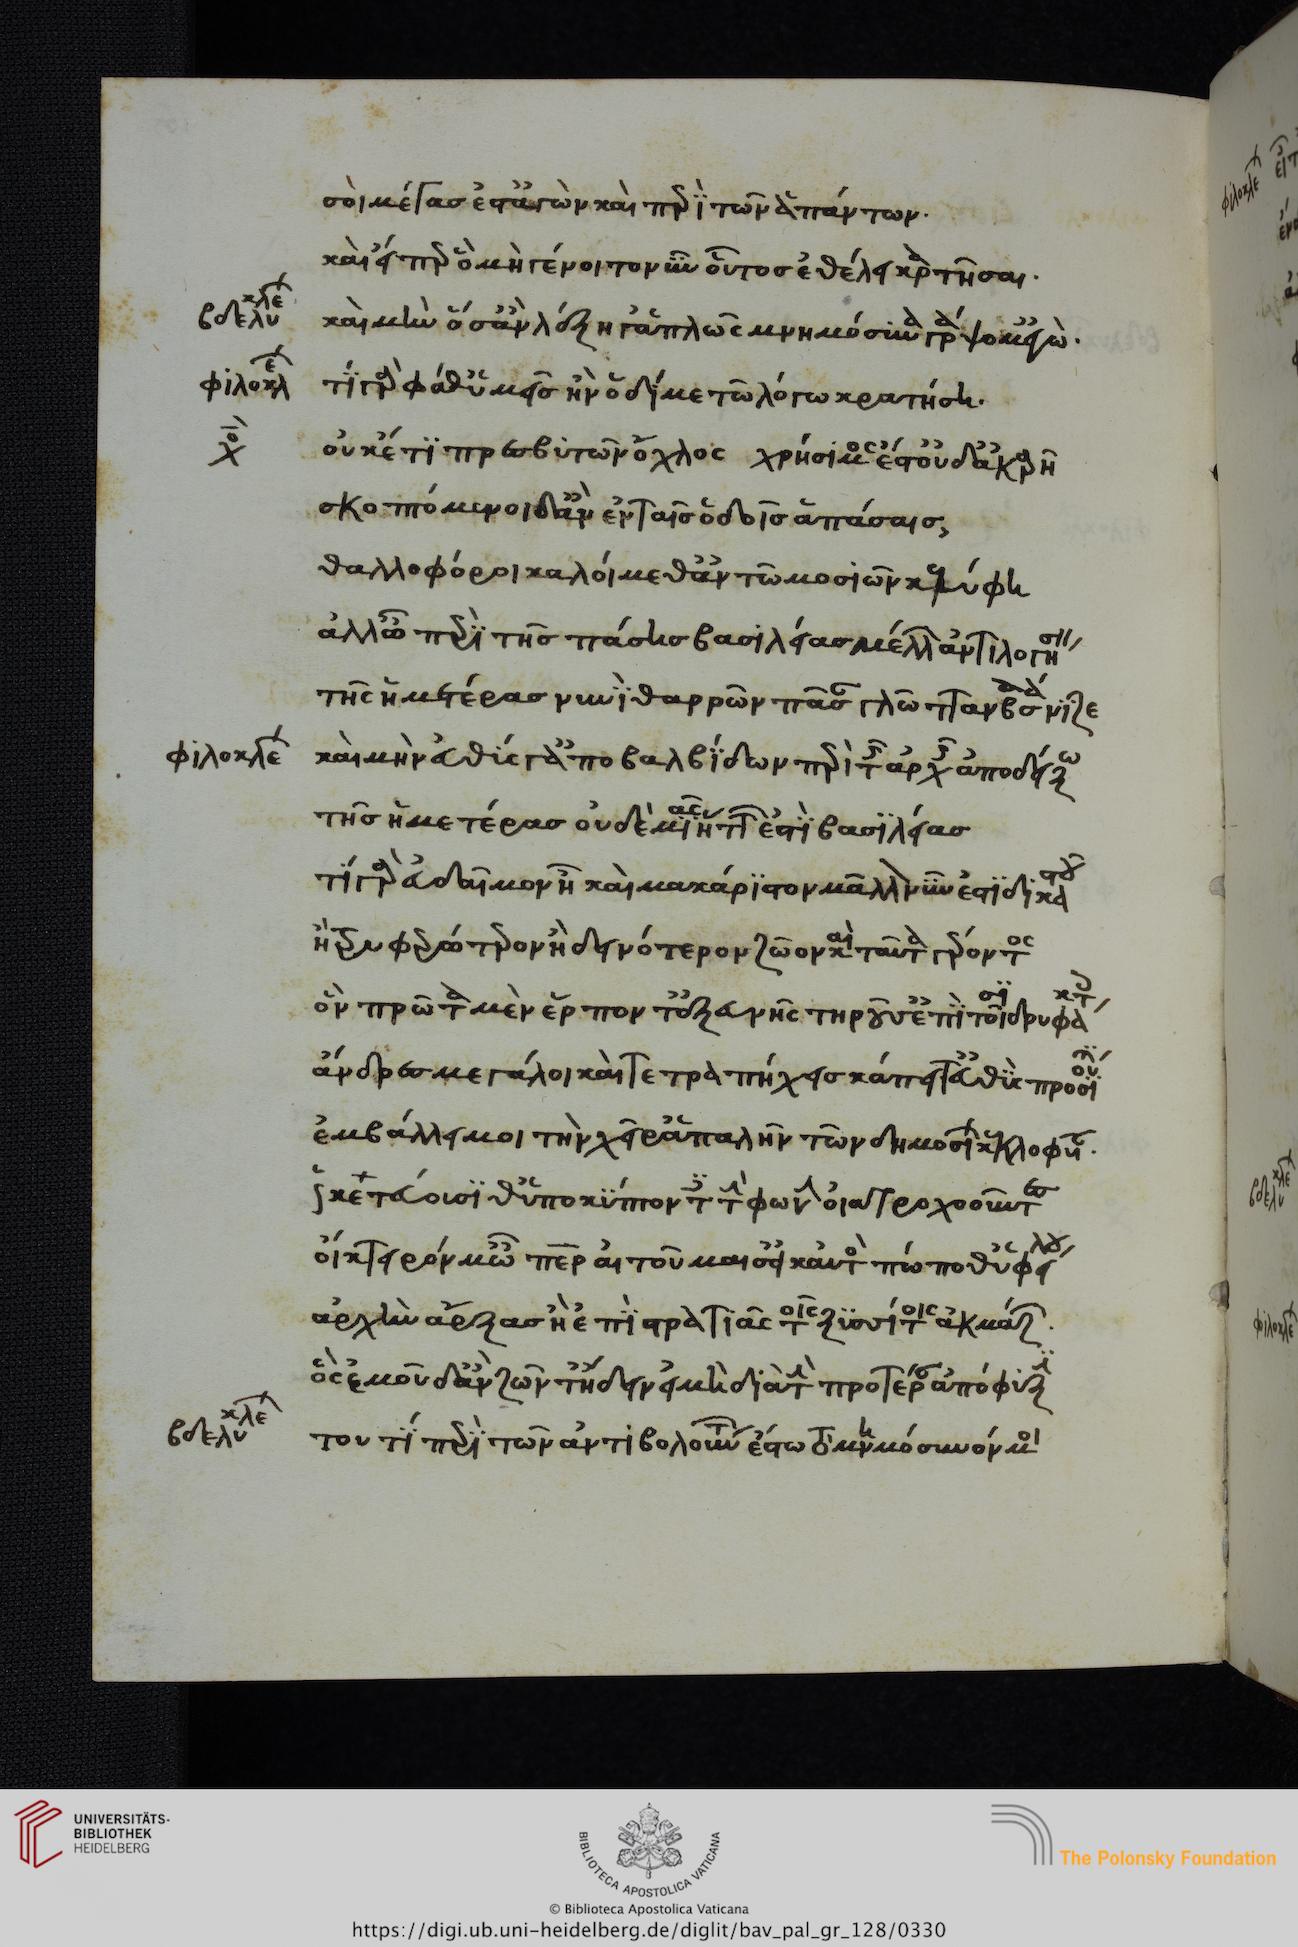 σοὶ μέγας ἐστὶν ἀγὼν καὶ περὶ τῶν ἁπάντων.
καὶ εἴπερ ὃ μὴ γένοιτο νῦν οὗτος ἐθέλει κρατῆσαι.
βδελυκλέ
καὶ μὴν ὅσ' ἂν λέξη γ' ἁπλῶς μνημόσυνα γράψομαι 'γώ.
φιλοκλέ
τί γὰρ φάθ' ὑμεῖς ἢν ὁδί με τῶ λόγω κρατήση.
χο
οὐκέτι πρεσβυτῶν ὄχλος χρήσιμος ἔστ' οὐδ' ἀκαρῆ
σκοπτόμενοι δ' ἂν ἐν ταῖς ὁδοῖς ἁπάσαις,
θαλλοφόροι καλοίμεθ' ἀντωμοσιῶν κελύφη
ἀλλ' ὦ περὶ τῆς πάσης βασιλείας μέλλων ἀντιλογήσειν
τῆς ἡμετέρας νυνὶ θαρρῶν πᾶσαν γλῶτταν βασάνιζε
φιλοκλέ
καὶ μὴν εὐθύς γ' ἀπὸ βαλβίδων περὶ τῆς ἀρχῆς ἀποδείξω
τῆς ἡμετέρας οὐδεμιᾶς ἥττων ἐστὶ βασιλείας
τί γὰρ εὔδαιμον ἢ καὶ μακάριστον μᾶλλον νῦν ἐστὶ δικαστοῦ
ἢ τρυφερώτερον ἢ δεινότερον ζῶον καὶ ταῦτα γέροντος
ὃν πρῶτα μὲν ἕρποντ' ἐξ εὐνῆς τηροῦσ' ἐπὶ τοῖσι δρυφάκτοις
ἄνδρες μεγάλοι καὶ τετραπήχεις κἄπειτ' εὐθὺς προσιόντι
ἐμβάλλει μοι τὴν χεῖρ' ἁπαλὴν τῶν δημοσίων κεκλοφυῖαν.
ἱκετεύουσί θ' ὑποκύπτοντες τὴν φωνὴν οἰκτροχοοῦντες
οἴκτειρόν μ' ὦ πάτερ αἰτοῦμαί σ' εἰ καὐτὸς πώποθ' ὑφείλου
ἀρχὴν ἄρξας ἢ 'πὶ στρατιᾶς τοῖς ξυσσίτοις ἀγοράζων.
ὃς ἔμ' οὐδ' ἂν ζῶντ' ἤδειν εἰ μὴ διὰ τὴν προτέραν ἀπόφυξιν
βδελυκλέ
τουτὶ περὶ τῶν ἀντιβολούντων ἔστω τὸ μνημόσυνόν μοι
φιλοκλέ
βδελυκλέ
φιλοκλέ
UNIVERSITÄTS-
BIBLIOTHEK
HEIDELBERG
BIBLIOTECA APOSTOLICA VATICANA
The Polonsky Foundation
© Biblioteca Apostolica Vaticana
https://digi.ub.uni-heidelberg.de/diglit/bav_pal_gr_128/0330